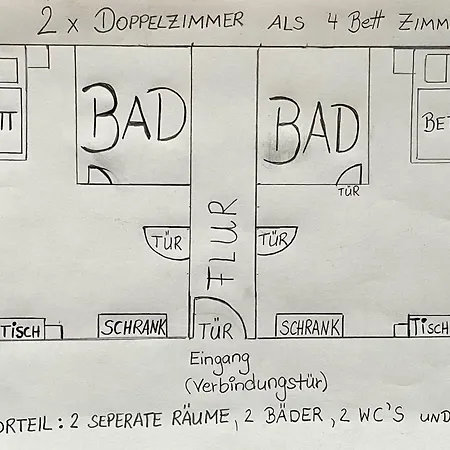 2 x DOPPELZIMMER ALS 4 Bett ZIMM
TT
BAD
BAD
BE
TÜR
TÜR
FLUR
TÜR
TISCH
SCHRANK
TÜR
SCHRANK
TISCH
Eingang
(Verbindungstür)
ORTEIL: 2 SEPERATE RÄUME, 2 BÄDER, 2 WC'S UND